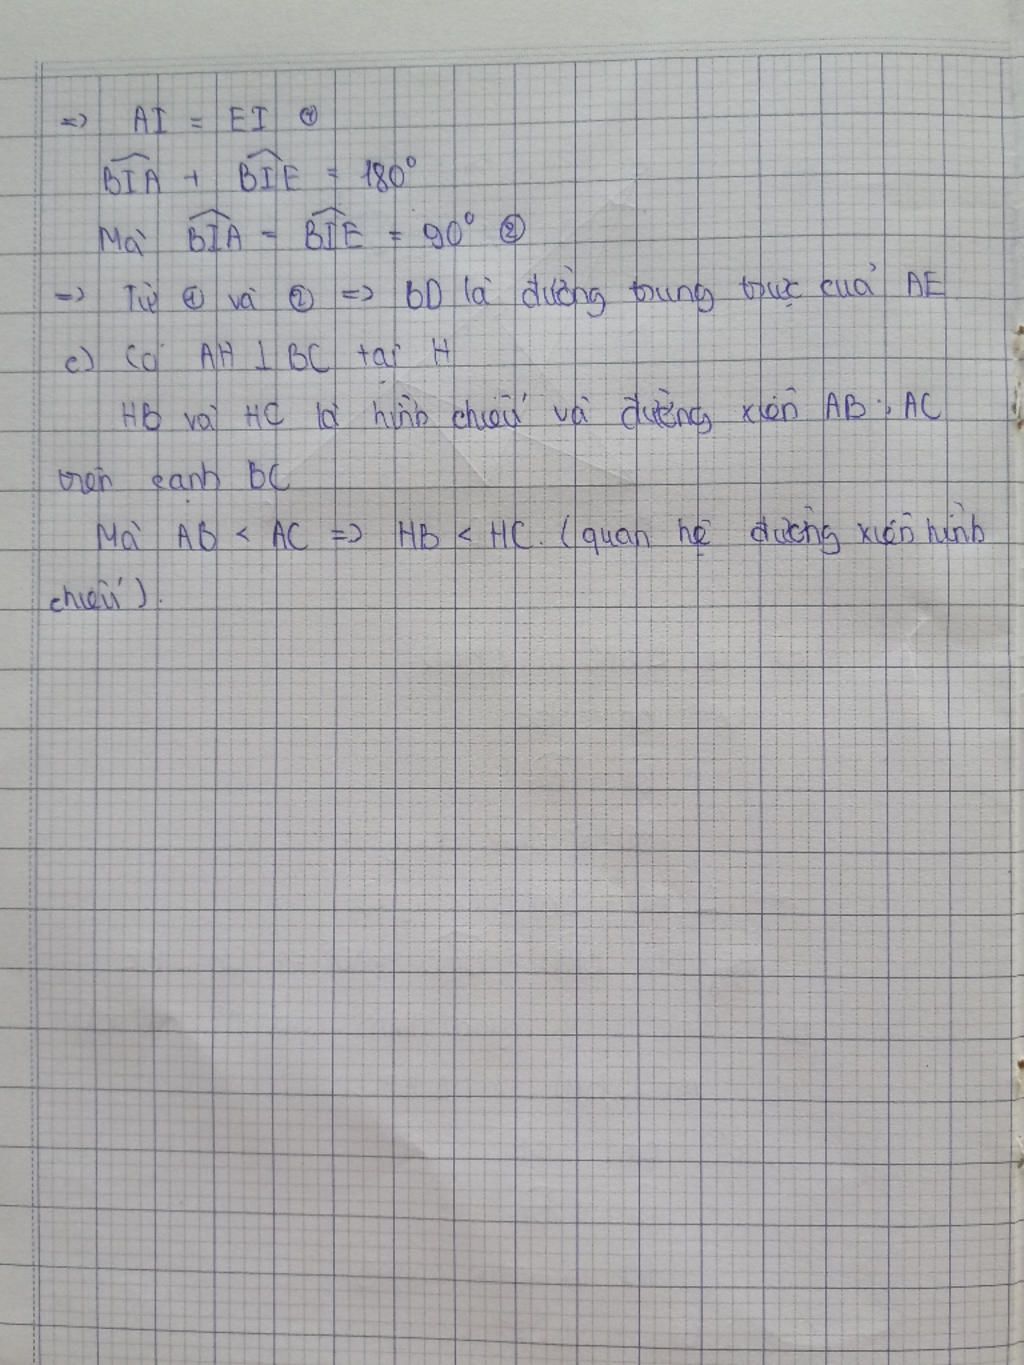 => AI = EI ①
BIA + BIE = 180°
Mà BIA = BIE = 90° ②
=> Từ ① và ② => BD là đường trung trực của AE
c) Có AH ⊥ BC tại H
HB và HC là hình chiếu và đường xiên AB, AC
trên cạnh BC
Mà AB < AC => HB < HC. (quan hệ đường xiên hình
chiếu).